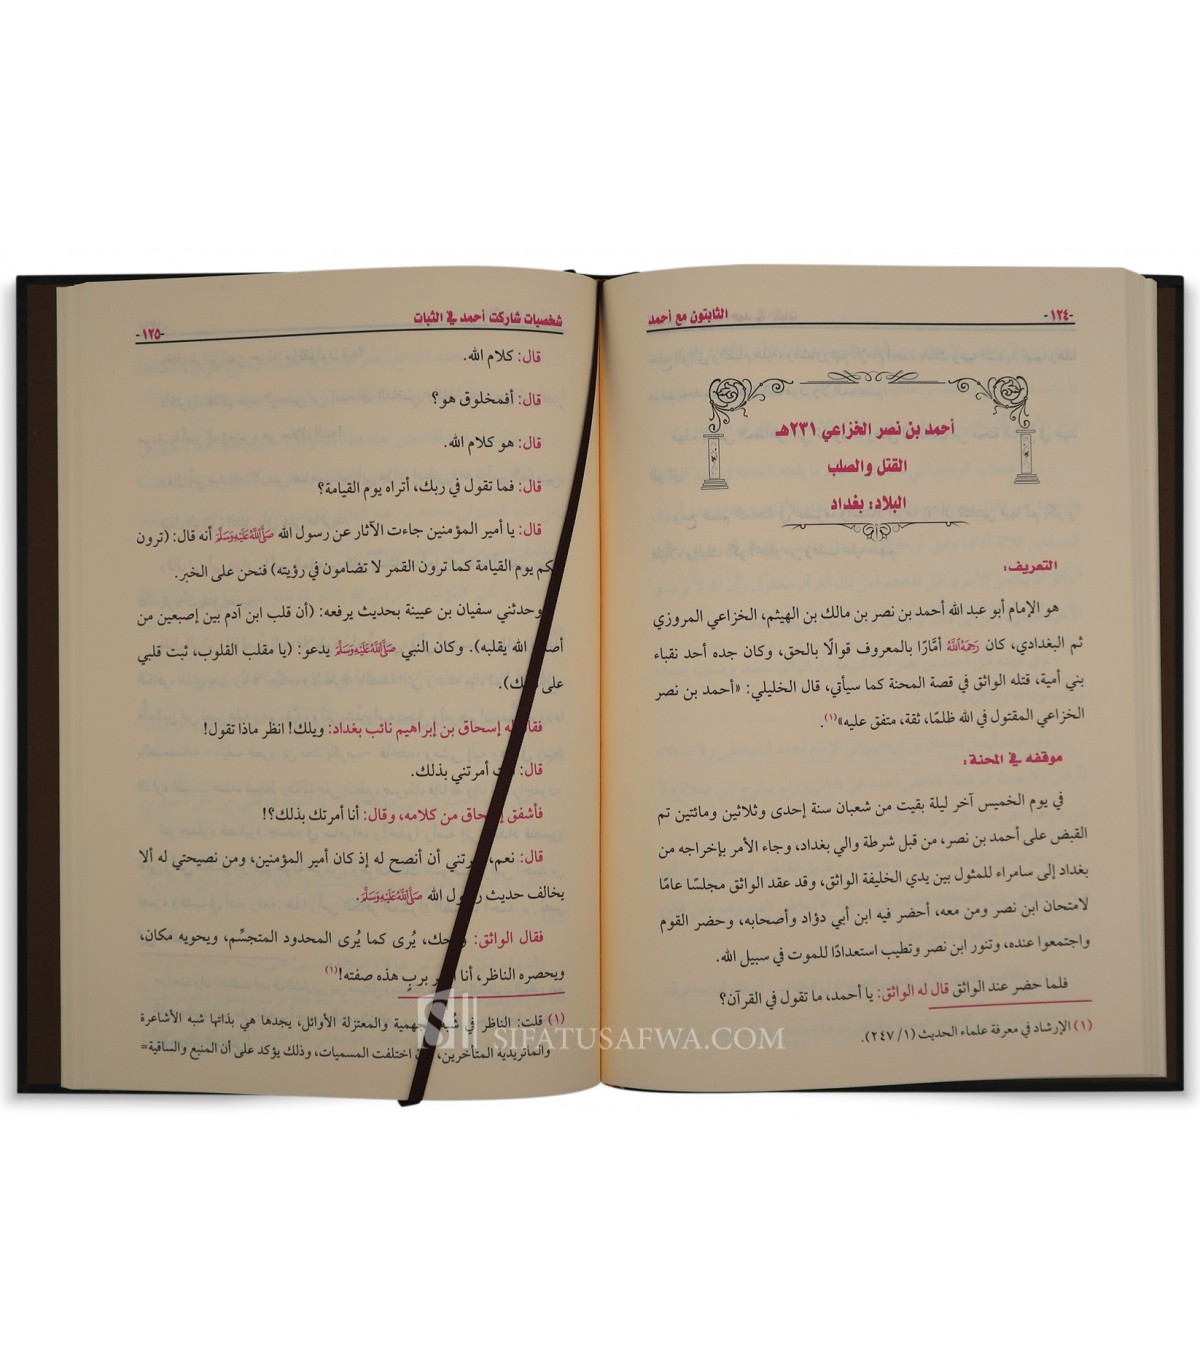 -١٢٤-
الثابتون مع أحمد
أحمد بن نصر الخزاعي ٢٣١هـ
القتل والصلب
البلاد: بغداد
التعريف:
هو الإمام أبو عبد الله أحمد بن نصر بن مالك بن الهيثم، الخزاعي المروزي
ثم البغدادي، كان رَحِمَهُ اللَّهُ أمَّارًا بالمعروف قوالًا بالحق، وكان جده أحد نقباء
بني أمية، قتله الواثق في قصة المحنة كما سيأتي، قال الخليلي: «أحمد بن نصر
الخزاعي المقتول في الله ظلمًا، ثقة، متفق عليه»(١).
موقفه في المحنة:
في يوم الخميس آخر ليلة بقيت من شعبان سنة إحدى وثلاثين ومائتين تم
القبض على أحمد بن نصر، من قبل شرطة والي بغداد، وجاء الأمر بإخراجه من
بغداد إلى سامراء للمثول بين يدي الخليفة الواثق، وقد عقد الواثق مجلسًا عامًا
لامتحان ابن نصر ومن معه، أحضر فيه ابن أبي دؤاد وأصحابه، وحضر القوم
واجتمعوا عنده، وتنور ابن نصر وتطيب استعدادًا للموت في سبيل الله.
فلما حضر عند الواثق قال له الواثق: يا أحمد، ما تقول في القرآن؟
(١) الإرشاد في معرفة علماء الحديث (١/ ٢٤٧).
شخصيات شاركت أحمد في الثبات
-١٢٥-
قال: كلام الله.
قال: أفمخلوق هو؟
قال: هو كلام الله.
قال: فما تقول في ربك، أتراه يوم القيامة؟
قال: يا أمير المؤمنين جاءت الآثار عن رسول الله صَلَّى اللَّهُ عَلَيْهِ وَسَلَّمَ أنه قال: (ترون
يوم القيامة كما ترون القمر لا تضامون في رؤيته) فنحن على الخبر.
وحدثني سفيان بن عيينة بحديث يرفعه: (أن قلب ابن آدم بين إصبعين من
الله يقلبه). وكان النبي صَلَّى اللَّهُ عَلَيْهِ وَسَلَّمَ يدعو: (يا مقلب القلوب، ثبت قلبي
على).
إسحاق بن إبراهيم نائب بغداد: ويلك! انظر ماذا تقول!
قال: أمرتني بذلك.
فأشفق من كلامه، وقال: أنا أمرتك بذلك؟!
قال: نعم، أن أنصح له إذ كان أمير المؤمنين، ومن نصيحتي له ألا
يخالف حديث الله صَلَّى اللَّهُ عَلَيْهِ وَسَلَّمَ.
فقال الواثق: يُرى كما يُرى المحدود المتجسِّم، ويحويه مكان،
ويحصره الناظر، أنا بربٍ هذه صفته!(١)
(١) قلت: الناظر في والمعتزلة الأوائل، يجدها هي بذاتها شبه الأشاعرة
والماتريدية المتأخرين، اختلفت المسميات، وذلك يؤكد على أن المنبع والساقية=
SIFATUSAFWA.COM